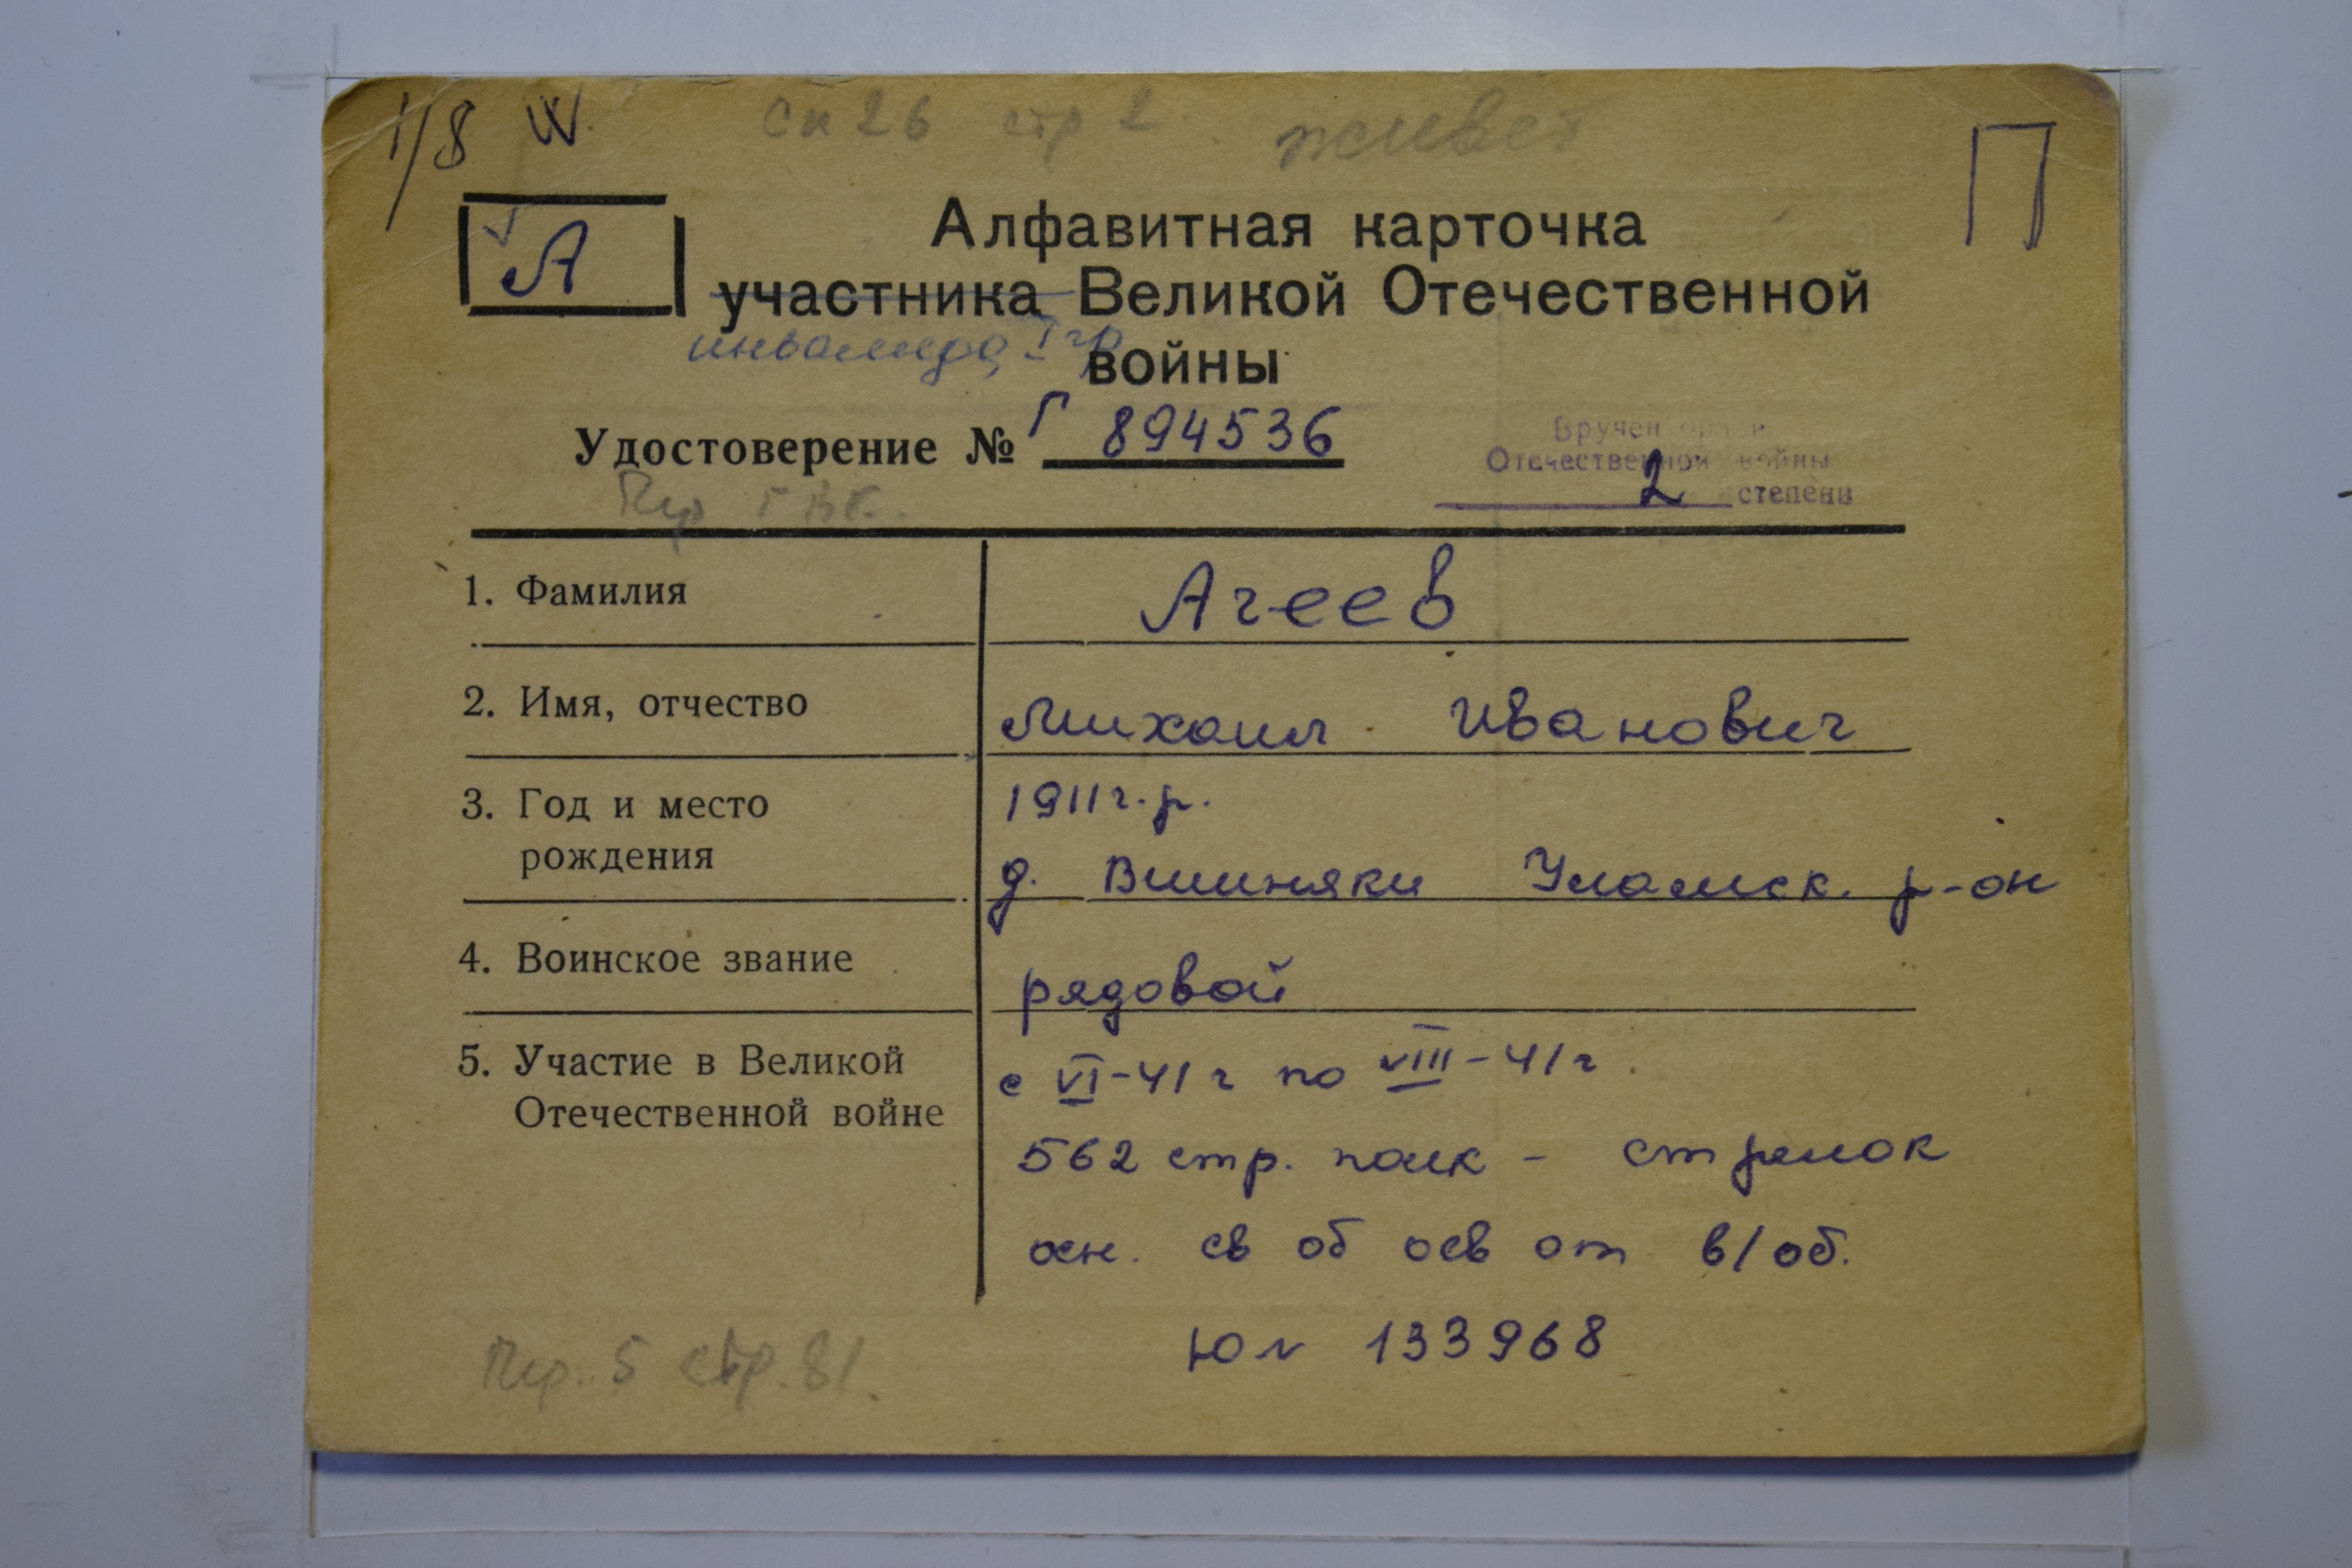 1/8 W
сп 26 стр 2. живет
П
А
Алфавитная карточка
участника Великой Отечественной
инвалида I гр
войны
Удостоверение № Г 894536
Вручен
Отечественной войны
2 степени
1. Фамилия Агеев
2. Имя, отчество Михаил Иванович
3. Год и место 1911 г.р.
рождения д. Вшиняки Уламск. р-он
4. Воинское звание рядовой
5. Участие в Великой с VI-41 г по VIII-41 г.
Отечественной войне
562 стр. полк - стрелок
осн. св об осв от в/об.
Юл 133968
стр. 81.